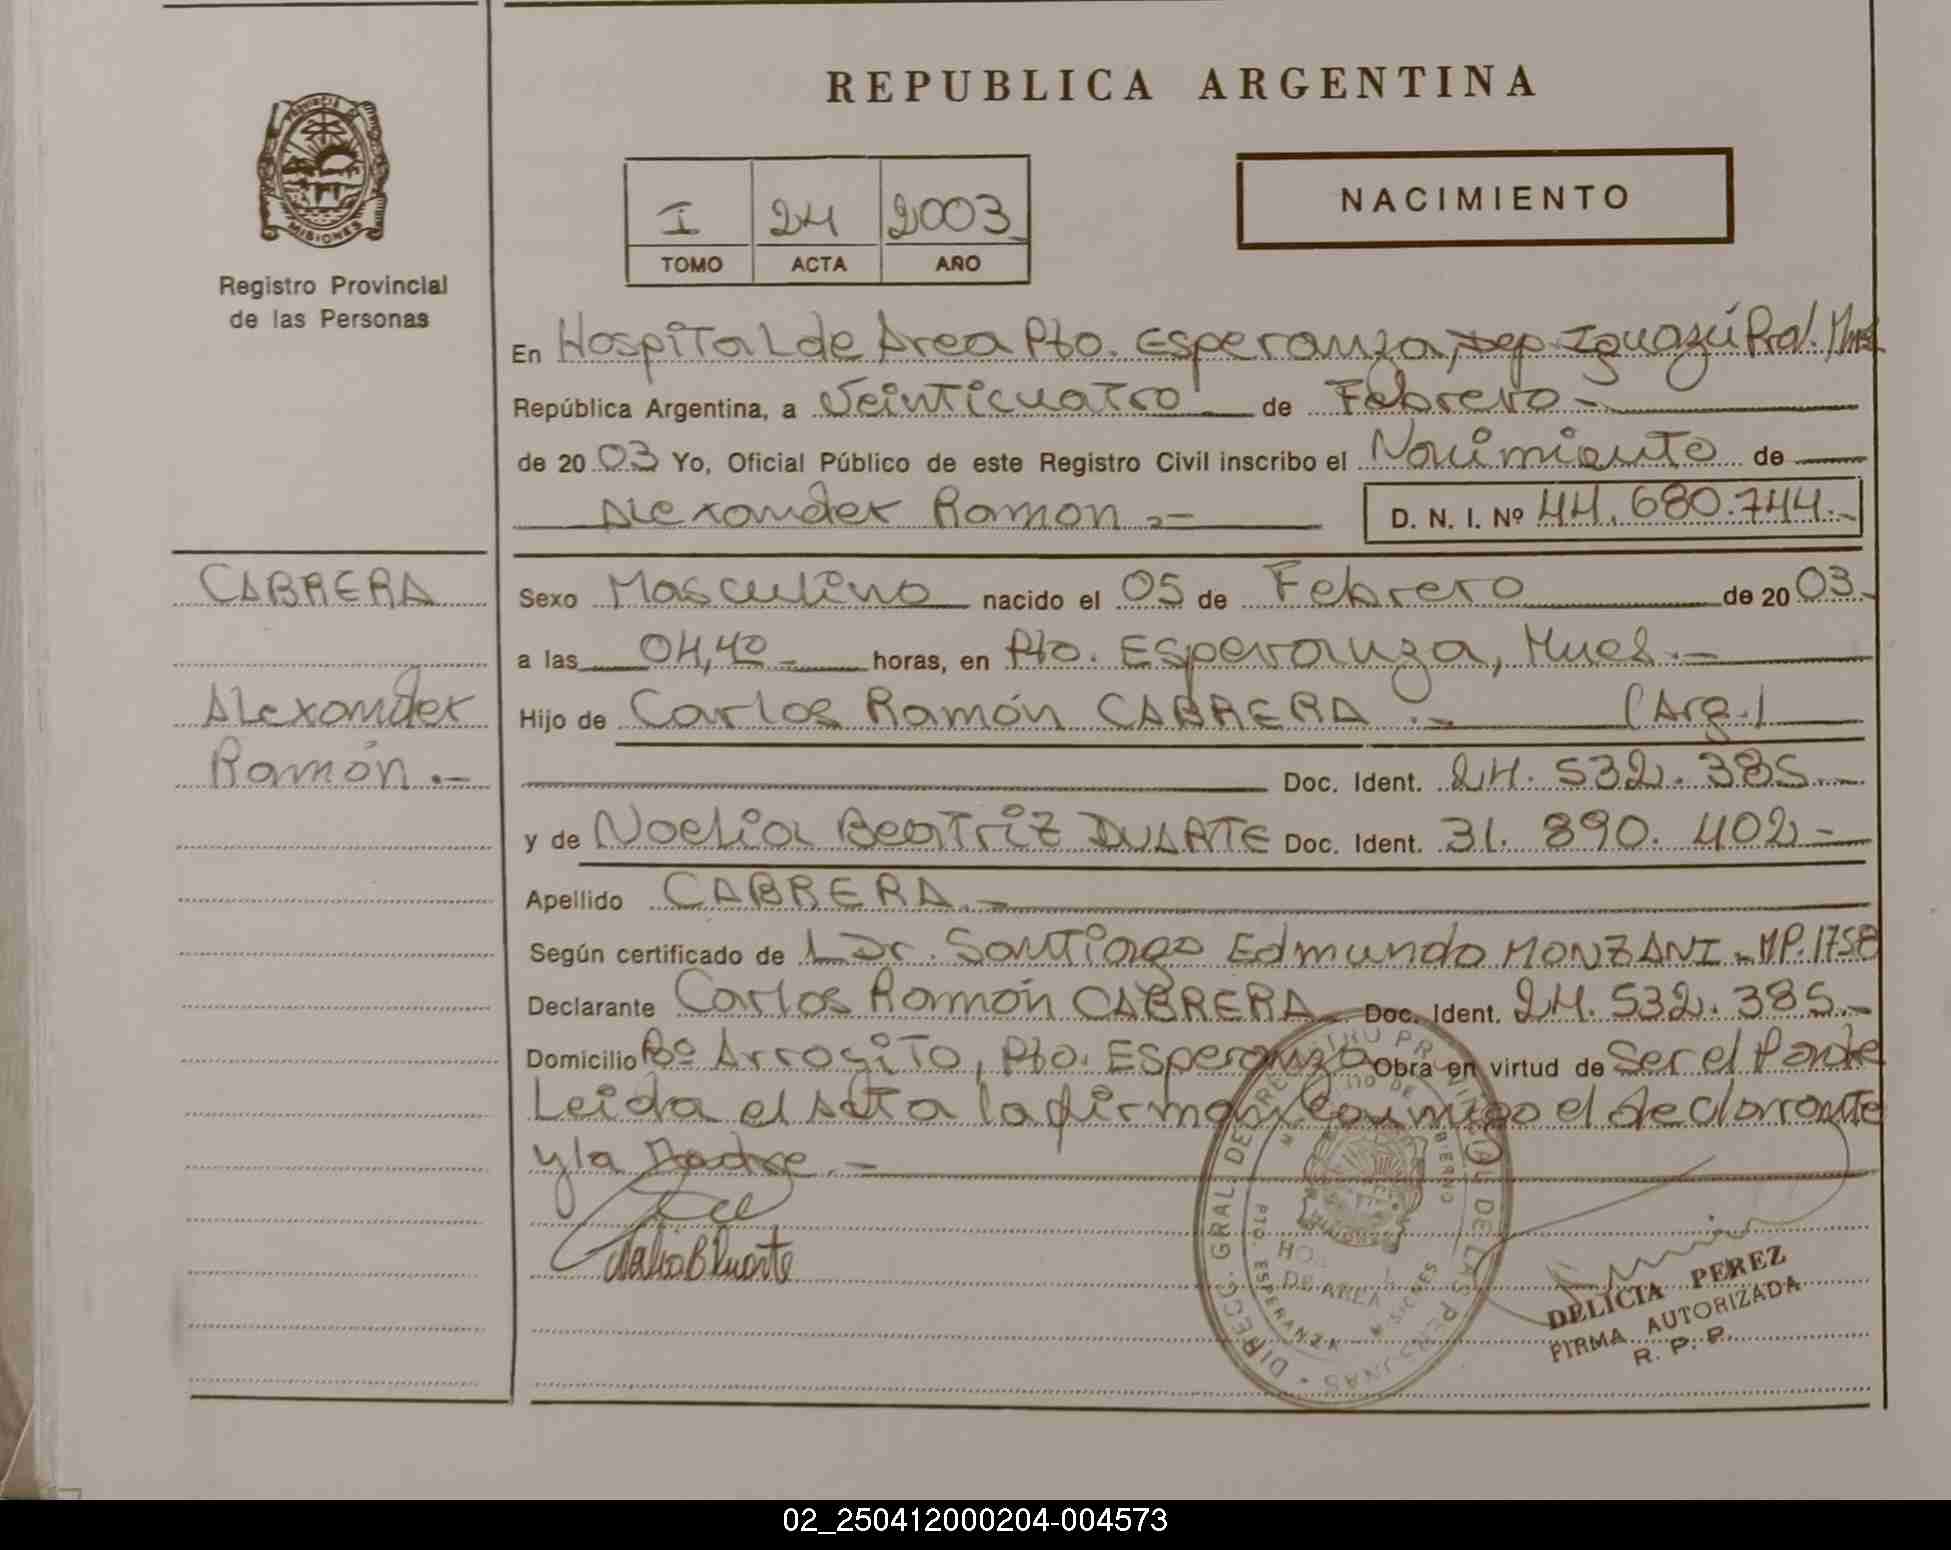 REPUBLICA ARGENTINA
PROVINCIA DE
MISIONES
Registro Provincial
de las Personas
I 24 2003
TOMO ACTA AÑO
NACIMIENTO
En Hospital de Area Pto. Esperanza, Dep. Iguazú
República Argentina, a Veinticuatro de Febrero.-
de 20 03 Yo, Oficial Público de este Registro Civil inscribo el Nacimiento de
Alexander Ramon.- D. N. I. Nº 44.680.744.-
CABRERA
Alexander
Ramón.-
Sexo Masculino nacido el 05 de Febrero de 20 03.-
a las 04,40 horas, en Pto. Esperanza, Mnes.-
Hijo de Carlos Ramón CABRERA.- (Arg.)
Doc. Ident. 24.532.385.-
y de Noelia Beatriz DUARTE Doc. Ident. 31.890.402-
Apellido CABRERA.-
Según certificado de Dr. Santiago Edmundo MONZANI - MP.1758
Declarante Carlos Ramón CABRERA Doc. Ident. 24.532.385.-
Domicilio Bº Arrocito, Pto. Esperanza Obra en virtud de Ser el Padre
Leida el Acta la firman conmigo el declarante
y la Madre.-
Noelia B Duarte
DIRECC. GRAL. DE REGISTRO PROVINCIAL DE LAS PERSONAS
PTO. ESPERANZA - MISIONES
DE AREA
DELICIA PEREZ
FIRMA AUTORIZADA
R. P. P.
02_250412000204-004573